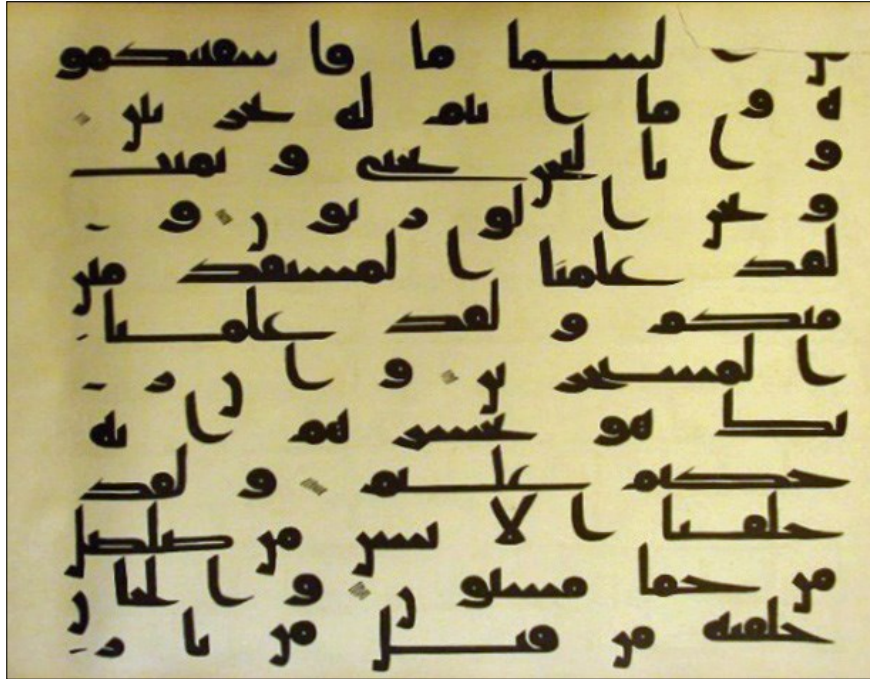 السما ما فاسقينكمو
ه وما انتم له بخزنين
وانا لنحن نحي ونميت
ونحن الورثون و
لقد علمنا المستقدمين
منكم ولقد علمنا
المستخرين وان ر
بك هو يحشرهم انه
حكيم عليم ولقد
خلقنا الانسن من صلصل
من حما مسنون والجان
خلقنه من قبل من نار